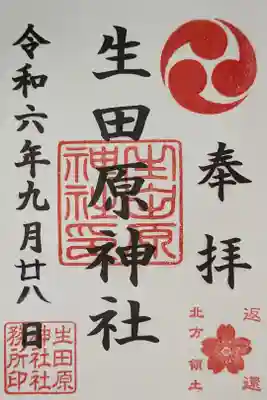 奉拝
返還
北方領土
生田原神社
生田原
神社印
令和六年九月廿八日
生田原
神社社
務所印